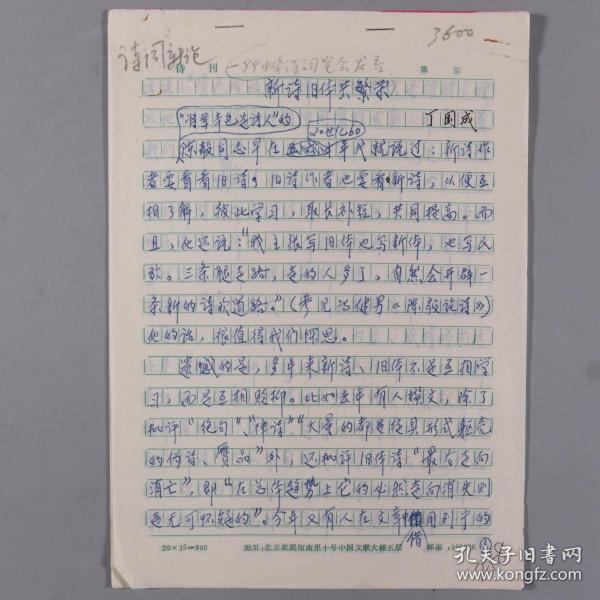 诗词新论
3600
诗 刊
第 页
新诗旧体共繁荣
丁国成
"将军本色是诗人"的
20世纪60
陈毅同志早在年代就说过：新诗作
者要看看旧诗，旧诗作者也要看新诗，以便互
相了解，彼此学习，取长补短，共同提高。而
且，他还说："我主张写旧体也写新体，也写民
歌。三条腿走路，走的人多了，自然会开辟一
条新的诗歌道路。"（参见冯健男《陈毅论诗》）
他的话，很值得我们深思。
遗憾的是，多年来新诗、旧体不是互相学
习，而是互相贬抑。比如去年有人撰文，除了
批评"绝句"、"律诗""大量的都是徒具形式躯壳
的伪诗、赝品"外，还批评旧体诗"最后走向
消亡"，即"在总体趋势上它的必然走向消失则
是无可怀疑的"。今年又有人在文章中借用列宁的
20×15=300
地址：北京农展馆南里十号中国文联大楼五层
邮编：100026
孔夫子旧书网
kongfz.com